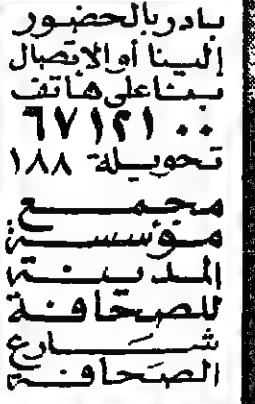 بادر بالحضور
إلينا أو الاتصال
بنا على هاتف
٦٧١٢١٠٠
تحويلة ١٨٨
مجمع
مؤسسة
المدينة
للصحافة
شارع
الصحافة